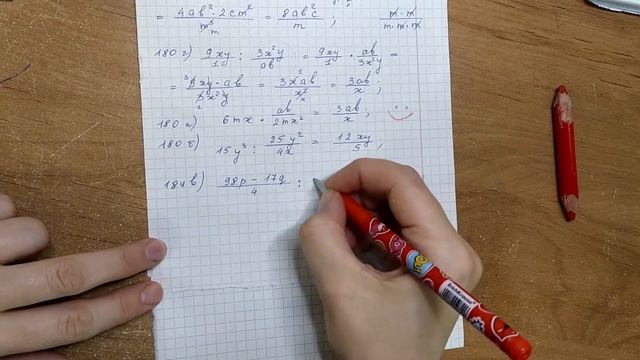 = 4ab²·2cm² / m³ = 8ab²c / m ;   m·m / m·m·m
180 г) 9xy / 1 : 3x²y / ab = 9xy / 1 · ab / 3x²y =
= 9xy·ab / 3x²y = 3xab / x² = 3ab / x ;
180 а) 6mx · ab / 2mx² = 3ab / x ;
180 б) 15y³ : 25y² / 4x = 12xy / 5 ;
184 в) 98p − 17q / 4 :
ErichKrause